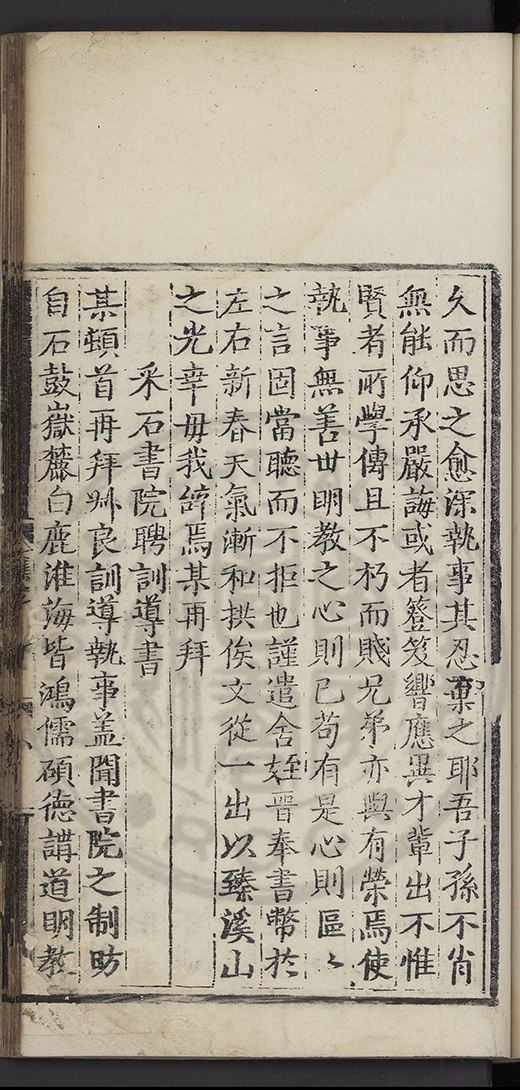 久而思之愈深執事其忍棄之耶吾子孫不肖
無能仰承嚴誨或者簦笈響應異才輩出不惟
賢者所學傳且不朽而賤兄弟亦與有榮焉使
執事無善世明教之心則已苟有是心則區〻
之言固當聽而不拒也謹遣舍姪晉奉書幣於
左右新春天氣漸和拱俟文從一出以臻溪山
之光幸毋我辭焉某再拜
采石書院聘訓導書
某頓首再拜艸良訓導執事盖聞書院之制昉
自石鼓嶽麓白鹿淮海皆鴻儒碩德講道明教